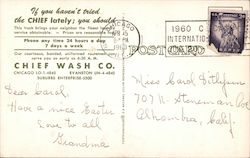 If you haven't tried
the CHIEF lately; you should
This truck brings your neighbor the finest laundry
service obtainable. Prices are reasonable.
Phone any time 24 hours a day
7 days a week
Our courteous, bonded, uniformed routemen
serve you as early as 6:30 A.M.
CHIEF WASH CO.
CHICAGO LO-1-4840 EVANSTON UN-4-4840
SUBURBS ENTERPRISE-2300
CHICAGO
APR 15
PM
1960
1960
INTERNATIO
POST CARD
Dear Carol,
Have a nice Easter
Love to all
Grandma
Miss Carol
707 N.
Alhambra, Calif.